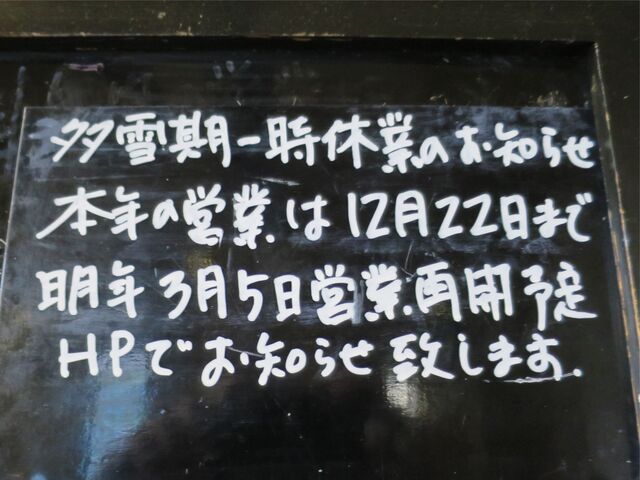 多雪期一時休業のお知らせ
本年の営業は12月22日まで
明年3月5日営業再開予定
HPでお知らせ致します.